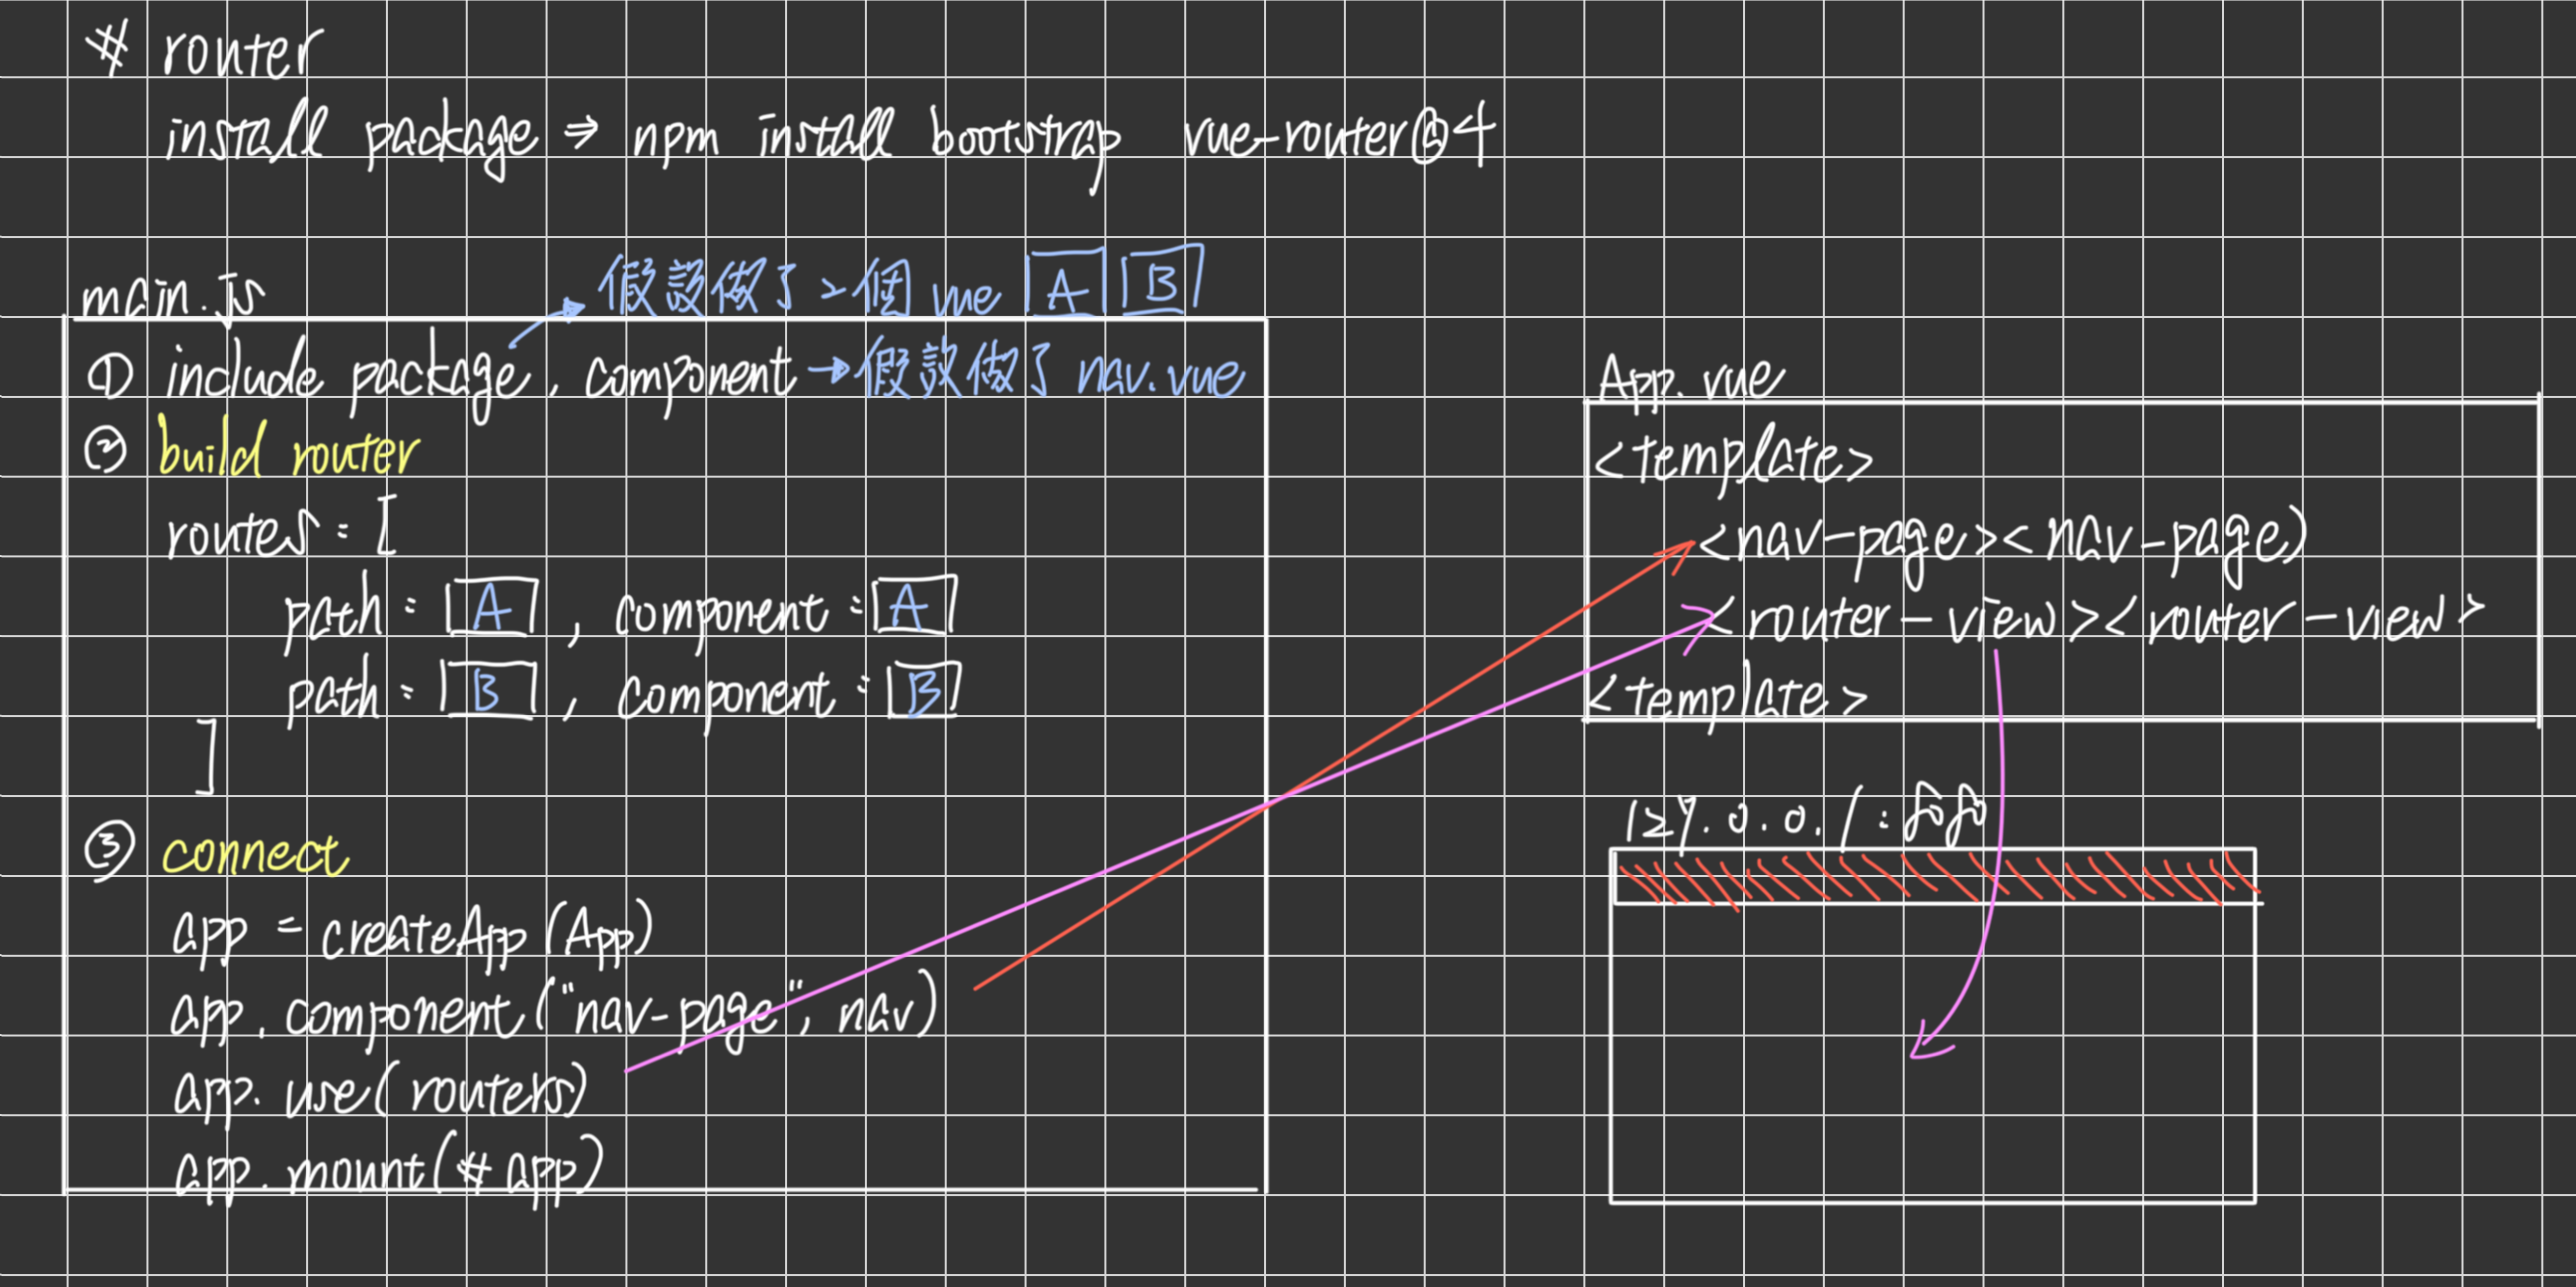 # router
install package ⇒ npm install bootstrap vue-router@4
main.js
假設做了2個 vue A B
① include package, component → 假設做了 nav.vue
② build router
routes = [
path: A , component: A
path: B , component: B
]
③ connect
app = createApp(App)
app.component("nav-page", nav)
app.use(routers)
app.mount(#app)
App.vue
<template>
<nav-page><nav-page)
<router-view><router-view>
<template>
127.0.0.1:8080